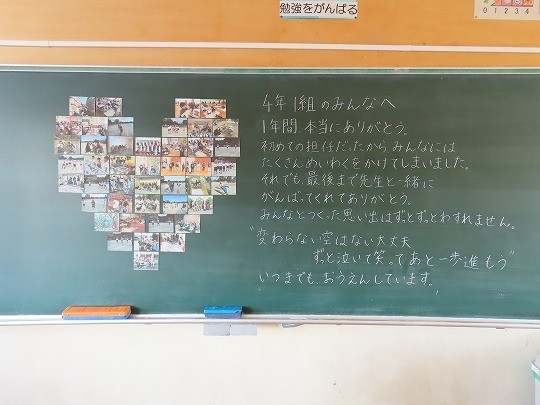 勉強をがんばる
0 1 2 3 4
4年1組のみんなへ
1年間本当にありがとう。
初めての担任だったから みんなには
たくさんめいわくをかけてしまいました。
それでも、最後まで先生と一緒に
がんばってくれてありがとう。
みんなとつくった思い出はずっとずっとわすれません。
"変わらない空はない大丈夫
ずっと泣いて笑ってあと一歩進もう"
いつまでも、おうえんしています。